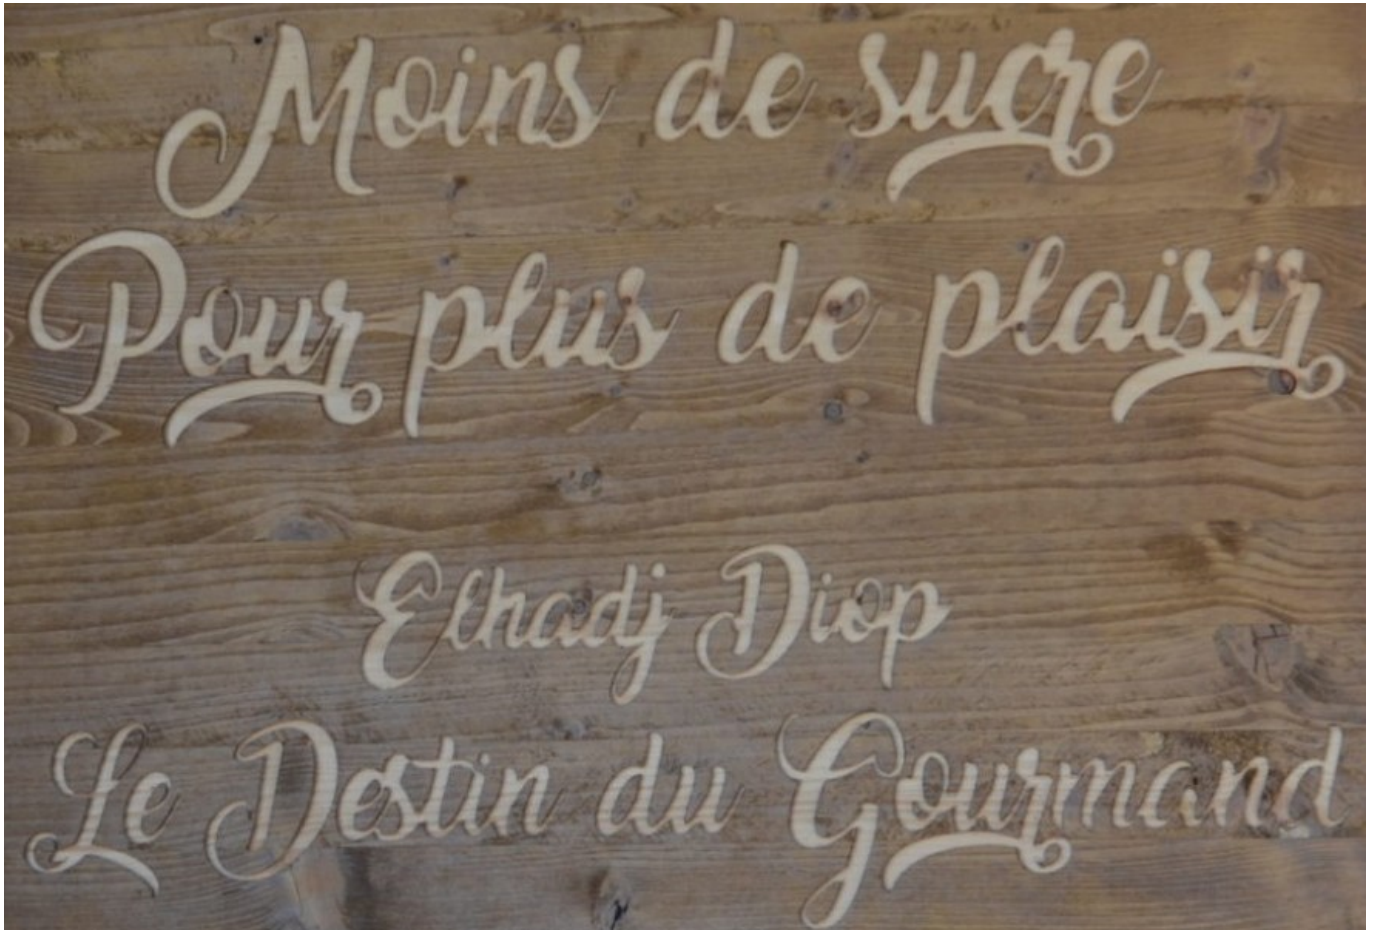 Moins de sucre
Pour plus de plaisir
Elhadj Diop
Le Destin du Gourmand